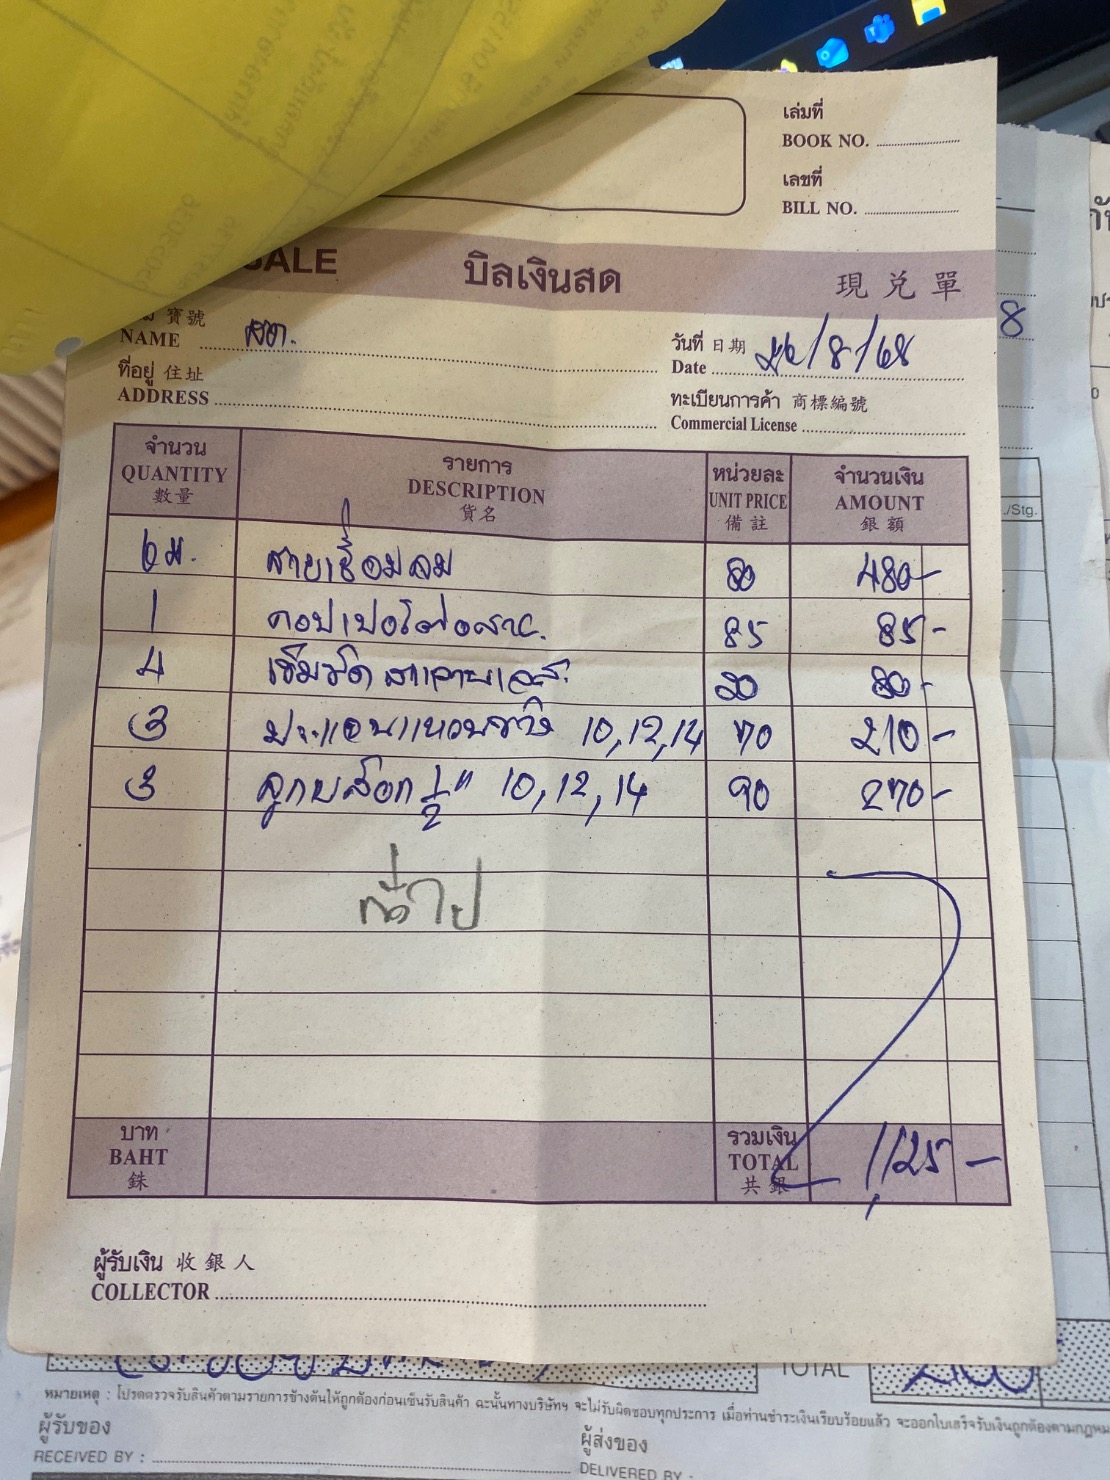 เล่มที่
BOOK NO.
เลขที่
BILL NO.
SALE
บิลเงินสด
現兌單
寶號
NAME สด.
วันที่ 日期
Date 26/8/68
ที่อยู่ 住址
ADDRESS
ทะเบียนการค้า 商標編號
Commercial License
จำนวน รายการ หน่วยละ จำนวนเงิน
QUANTITY DESCRIPTION UNIT PRICE AMOUNT
數量 貨名 備註 銀額
6 ม. สายเชื่อมลม 80 480-
1 85 85-
4 เข็มขัดสแตนเลส 20 80-
3 ประแจแหวนข้าง 10, 12, 14 70 210-
3 ลูกบล็อก 1/2" 10, 12, 14 90 270-
ทั่วไป
บาท รวมเงิน
BAHT TOTAL 1,125 -
銖 共銀
ผู้รับเงิน 收銀人
COLLECTOR
8
./Stg.
TOTAL
หมายเหตุ : โปรดตรวจรับสินค้าตามรายการข้างต้นให้ถูกต้องก่อนเซ็นรับสินค้า ฉะนั้นทางบริษัทฯ จะไม่รับผิดชอบทุกประการ เมื่อท่านชำระเงินเรียบร้อยแล้ว จะออกใบเสร็จรับเงินถูกต้องตามกฎหม
ผู้รับของ ผู้ส่งของ
RECEIVED BY : DELIVERED BY :